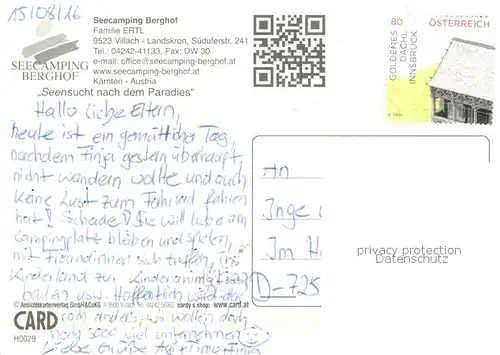 15/08/16
Seecamping Berghof
Familie ERTL
9523 Villach - Landskron, Süduferstr. 241
Tel.: 04242-41133, Fax: DW 30
e-mail: office@seecamping-berghof.at
www.seecamping-berghof.at
Kärnten - Austria
SEECAMPING
BERGHOF
"Seensucht nach dem Paradies"
80 ÖSTERREICH
GOLDENES
DACHL
INNSBRUCK
Hallo liebe Eltern,
heute ist ein gemütlicher Tag,
nachdem Finja gestern überhaupt
nicht wandern wollte und auch
keine Lust zum Fahrrad fahren
hat! Schade! Sie will lieber am
Campingplatz bleiben und spielen,
mit Freundinnen sich treffen, ins
Kinderland zur Kinderanimation,
baden usw. Hoffentlich wird das
noch anders, wir wollen doch
noch sooo viel unternehmen
Liebe Grüße
An
Inge
Im H
D-725
privacy protection
Datenschutz
© Ansichtskartenverlag GmbH&CoKG A 9500 Villach Tel. 04242 56062 cardy's shop: www.card.at
CARD
H0029